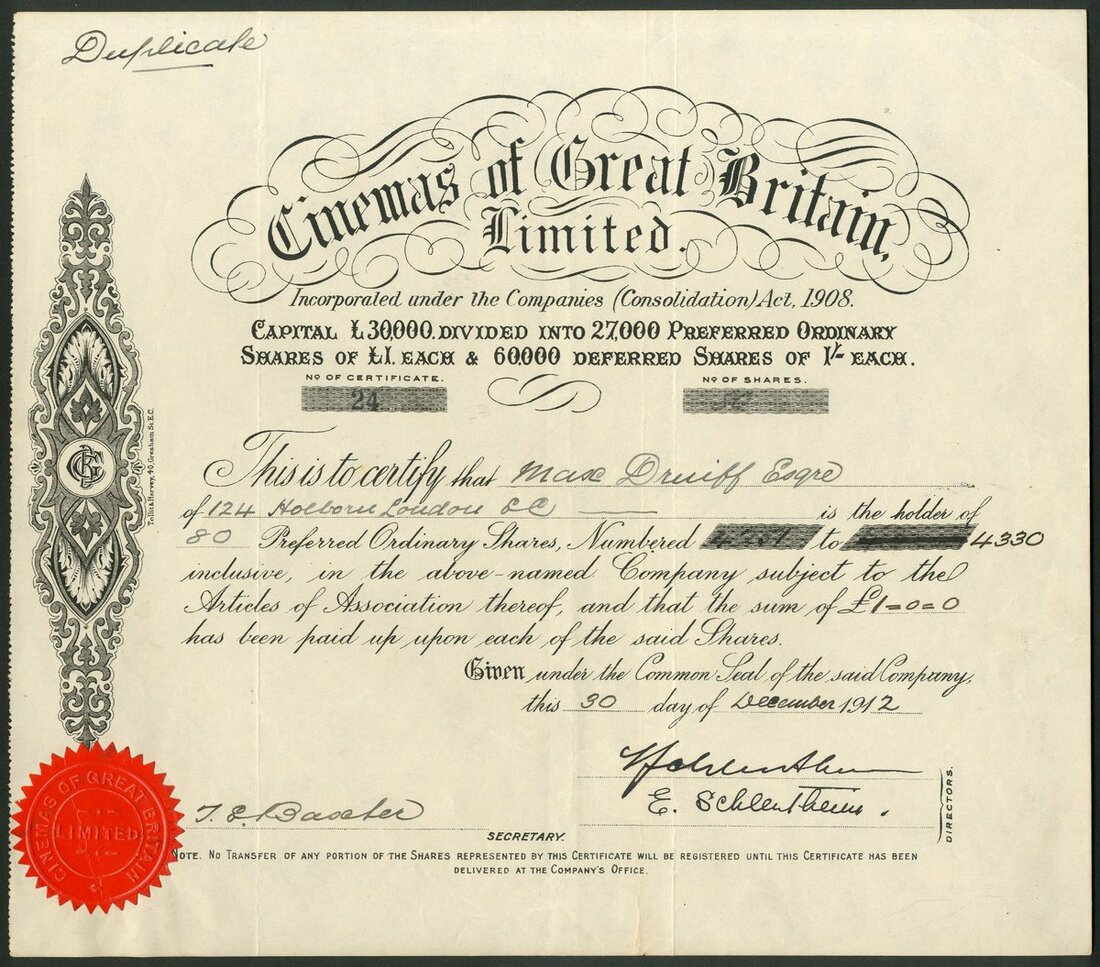 Duplicate
Cinemas of Great Britain,
Limited.
Incorporated under the Companies (Consolidation) Act, 1908.
CAPITAL £30,000. DIVIDED INTO 27,000 PREFERRED ORDINARY
SHARES OF £1. EACH & 60,000 DEFERRED SHARES OF 1/- EACH.
No OF CERTIFICATE.
No OF SHARES.
24
This is to certify that Max Druiff Esqre
of 124 Holborn London EC is the holder of
80 Preferred Ordinary Shares, Numbered to 4330
inclusive, in the above-named Company subject to the
Articles of Association thereof, and that the sum of £1=0=0
has been paid up upon each of the said Shares.
Given under the Common Seal of the said Company,
this 30 day of December 1912
E. Schlentheim.
DIRECTORS.
T. E. Baxter
SECRETARY.
NOTE. NO TRANSFER OF ANY PORTION OF THE SHARES REPRESENTED BY THIS CERTIFICATE WILL BE REGISTERED UNTIL THIS CERTIFICATE HAS BEEN
DELIVERED AT THE COMPANY'S OFFICE.
CINEMAS OF GREAT BRITAIN
LIMITED
Tollit & Harvey, 40, Gresham St, E.C.